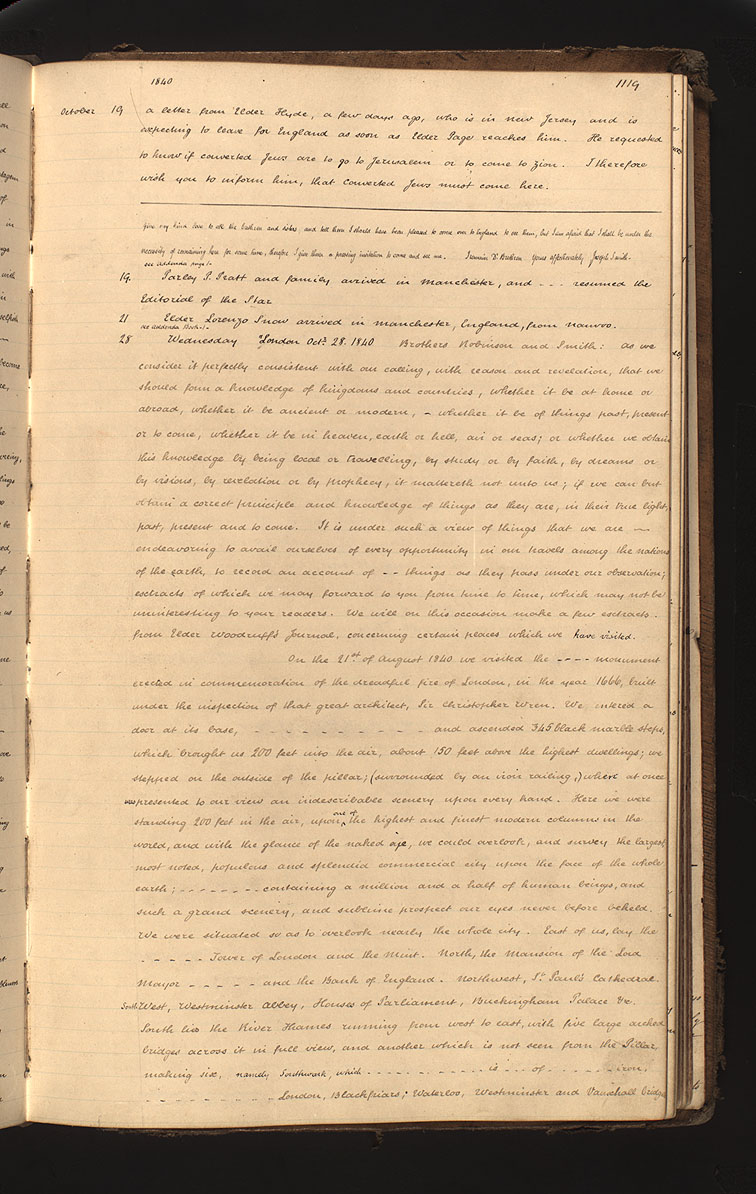 1840 1119
October 19 a letter from Elder Hyde, a few days ago, who is in new Jersey and is
expecting to leave for England as soon as Elder Page reaches him. He requested
to know if converted Jews are to go to Jerusalem or to come to Zion. I therefore
wish you to inform him, that converted Jews must come here.
Give my kind love to all the brethren and sisters, and tell them I should have been pleased to come over to England to see them, but I am afraid that I shall be under the
necessity of remaining here for some time; therefore I give them a pressing invitation to come and see me. I remain Dr Brethren Yours affectionately Joseph Smith.
see Addenda page 1
19. Parley P. Pratt and family arrived in Manchester, and - - - resumed the
Editorial of the Star
21 Elder Lorenzo Snow arrived in Manchester, England, from Nauvoo.
see Addenda Book.1
28 Wednesday "London Octr. 28. 1840 Brothers Robinson and Smith: As we
consider it perfectly consistent with our calling, with reason and revelation, that we
should form a knowledge of kingdoms and countries, whether it be at home or
abroad, whether it be ancient or modern, - whether it be of things past, present
or to come, whether it be in heaven, earth or hell, air or seas; or whether we obtain
this knowledge by being local or travelling, by study or by faith, by dreams or
by visions, by revelation or by prophecy, it mattereth not unto us; if we can but
obtain a correct principle and knowledge of things as they are, in their true light,
past, present and to come. It is under such a view of things that we are —
endeavoring to avail ourselves of every opportunity in our travels among the nations
of the earth, to record an account of - - things as they pass under our observation;
extracts of which we may forward to you from time to time, which may not be
uninteresting to your readers. We will on this occasion make a few extracts
from Elder Woodruff's Journal, concerning certain places which we have visited.
On the 21st of August 1840 we visited the - - - - monument
erected in commemoration of the dreadful fire of London, in the year 1666, built
under the inspection of that great architect, Sir Christopher Wren. We entered a
door at its base, - - - - - - - - - - - and ascended 345 black marble steps,
which brought us 200 feet into the air, about 150 feet above the highest dwellings; we
stepped on the outside of the pillar; (surrounded by an iron railing,) where at once
was presented to our view an indescribable scenery upon every hand. Here we were
standing 200 feet in the air, upon one of the highest and finest modern columns in the
world, and with the glance of the naked eye, we could overlook, and survey the largest,
most noted, populous and splendid commercial city upon the face of the whole
earth; - - - - - - - containing a million and a half of human beings, and
such a grand scenery, and sublime prospect our eyes never before beheld.
We were situated so as to overlook nearly the whole city. East of us, lay the
- - - - - Tower of London and the Mint. North, the Mansion of the Lord
Mayor - - - - - and the Bank of England. Northwest, St. Paul's Cathedral.
South West, Westminster Abbey, Houses of Parliament, Buckingham Palace &c.
South lies the River Thames running from west to east, with five large arched
bridges across it in full view, and another which is not seen from the Pillar
making six, namely Southwark, which - - - - - - - - - - is - - of - - - - - - iron,
- - - - - - - - - - London, Blackfriars, Waterloo, Westminster and Vauxhall bridges